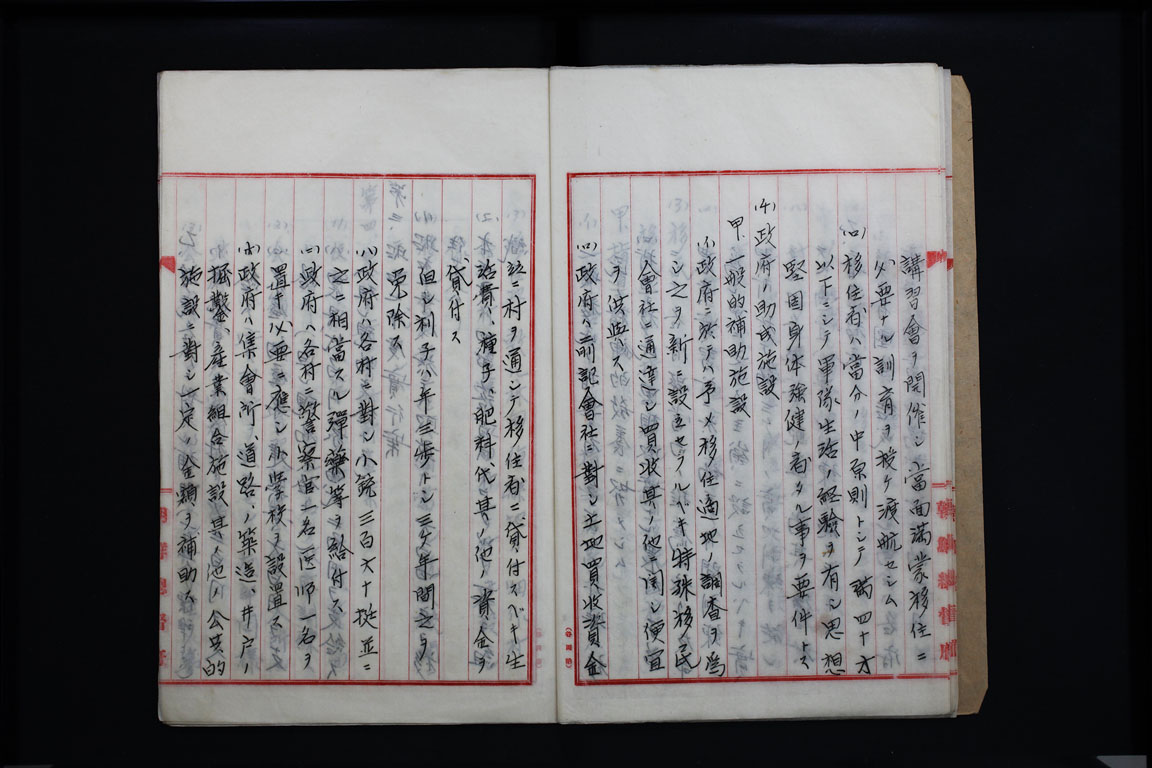 講習會ヲ開催シ當面滿蒙移住ニ
必要ナル訓育ヲ授ケ渡航セシム
(ロ)移住者ハ當分ノ中原則トシテ満四十才
以下ニシテ軍隊生活ノ経験ヲ有シ思想
堅固身体強健ノ者タル事ヲ要件トス
(4)政府ノ助成施設
甲、一般的補助施設
(イ)政府ニ於テハ予メ移住適地ノ調査ヲ為
シ之ヲ新ニ設立セラルベキ特殊移民
會社ニ通達シ買收其ノ他ニ関シ便宜
ヲ供與ス
(ロ)政府ハ前記會社ニ對シ土地買收資金
並ニ村ヲ通シテ移住者ニ貸付スベキ生
活費、種子肥料代其ノ他ノ資金ヲ
貸付ス
但シ利子ハ年三歩トシ三ケ年間之ヲ
免除ス
(ハ)政府ハ各村ニ對シ小銃三百六十挺並ニ
之ニ相當スル彈藥等ヲ給付ス
(ニ)政府ハ各村ニ警察官一名医師一名ヲ
置キ必要ニ應シ小学校ヲ設置ス
(ホ)政府ハ集會所、道路ノ築造、井戸ノ
掘鑿、産業組合施設其ノ他ノ公共的
施設ニ對シ一定ノ金額ヲ補助ス